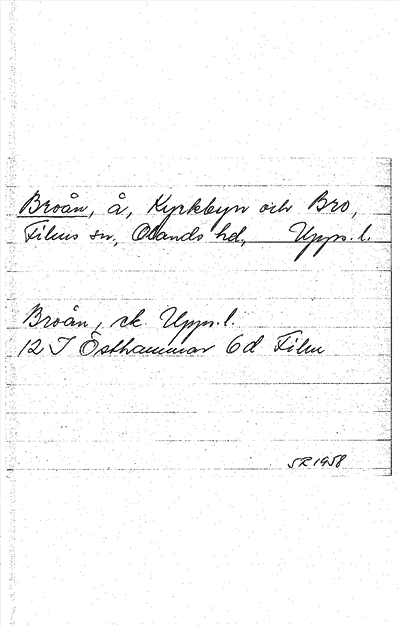 Broån, å, Kyrkbyn och Bro,
Films sn, Olands hd, Upps. l.
Broån, ek. Upps. l.
12 I Östhammar 6d Film
SR 1958